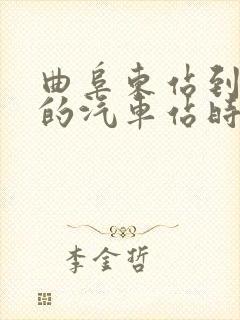 曲阜东站到
的汽车站时
李金哲